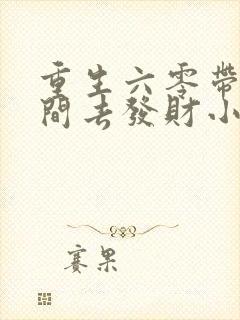 重生六零帶
間去發財小
賽果